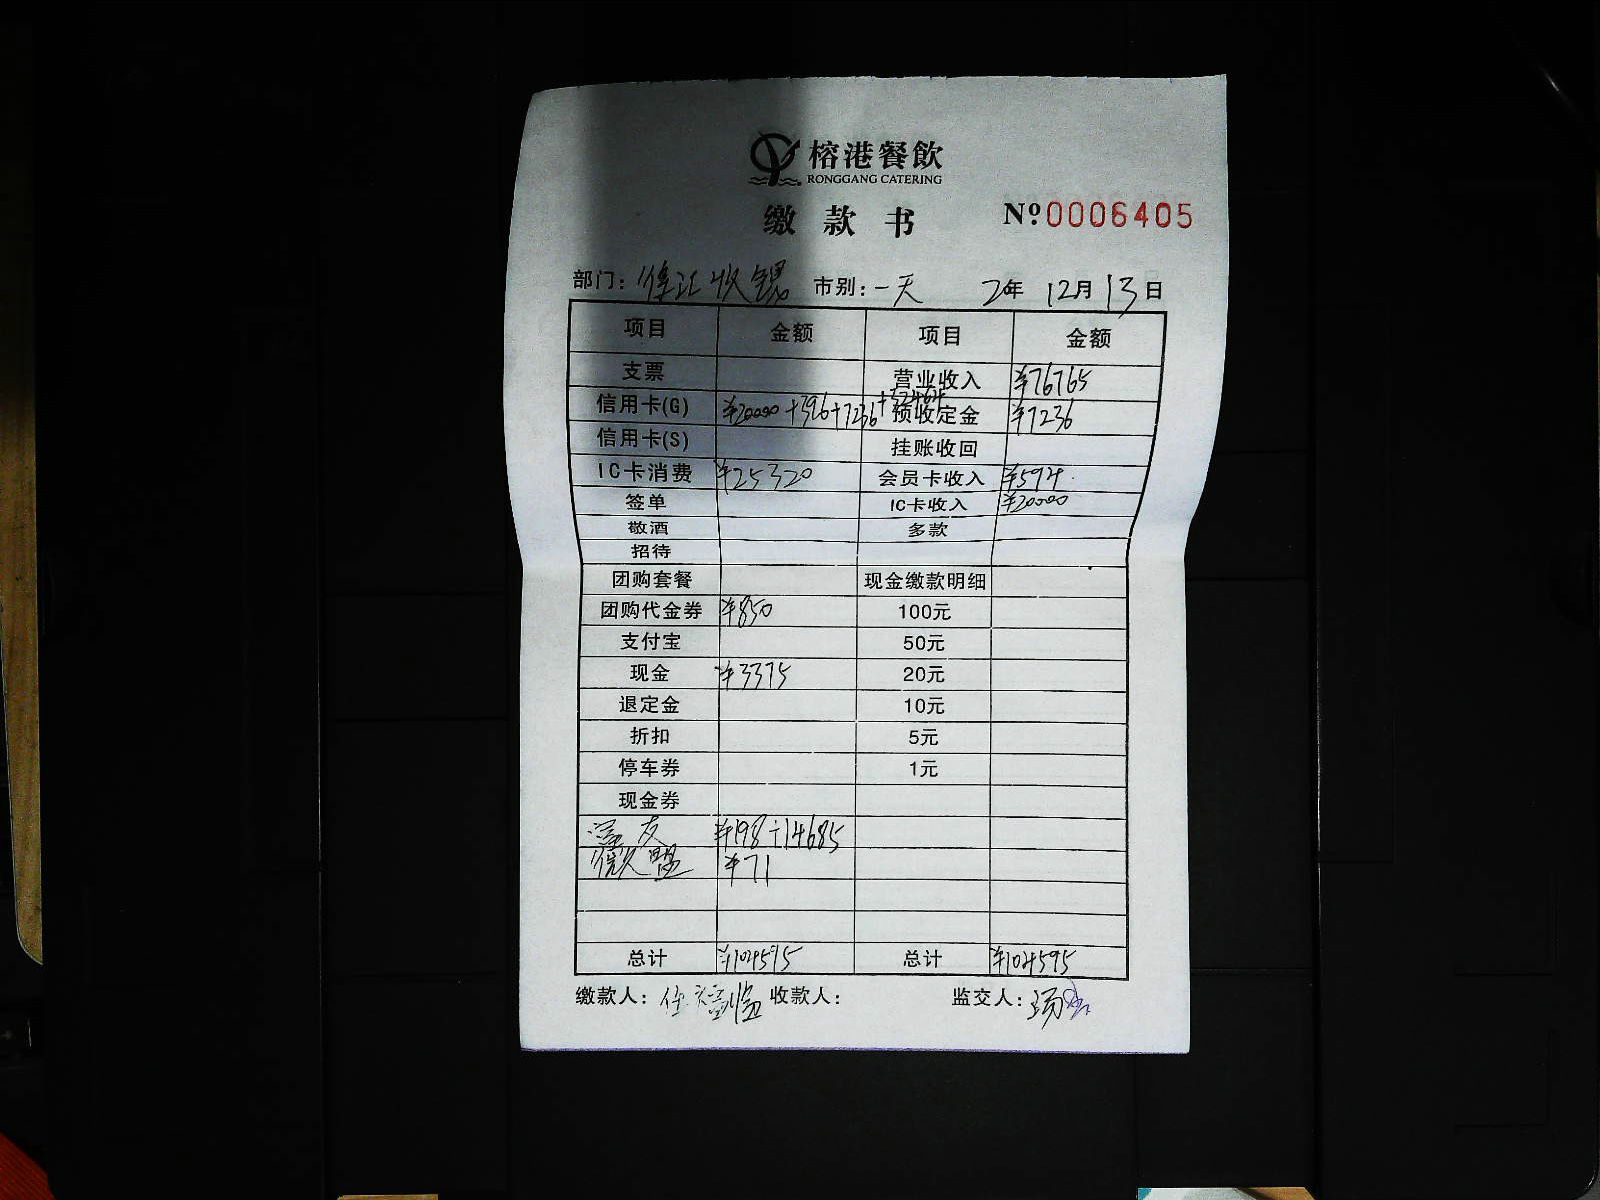 榕港餐飲
RONGGANG CATERING
缴款书
Nº0006405
部门：徐汇收银 市别：一天 2年 12月13日
项目 金额 项目 金额
支票 营业收入 ¥76765
信用卡(G) ¥20000+396+7236+32464 预收定金 ¥7236
信用卡(S) 挂账收回
IC卡消费 ¥25320 会员卡收入 ¥594
签单 IC卡收入 ¥20000
敬酒 多款
招待
团购套餐 现金缴款明细
团购代金券 ¥850 100元
支付宝 50元
现金 ¥3375 20元
退定金 10元
折扣 5元
停车券 1元
现金券
¥198+14685
微盟 ¥71
总计 ¥104595 总计 ¥104595
缴款人： 收款人： 监交人：